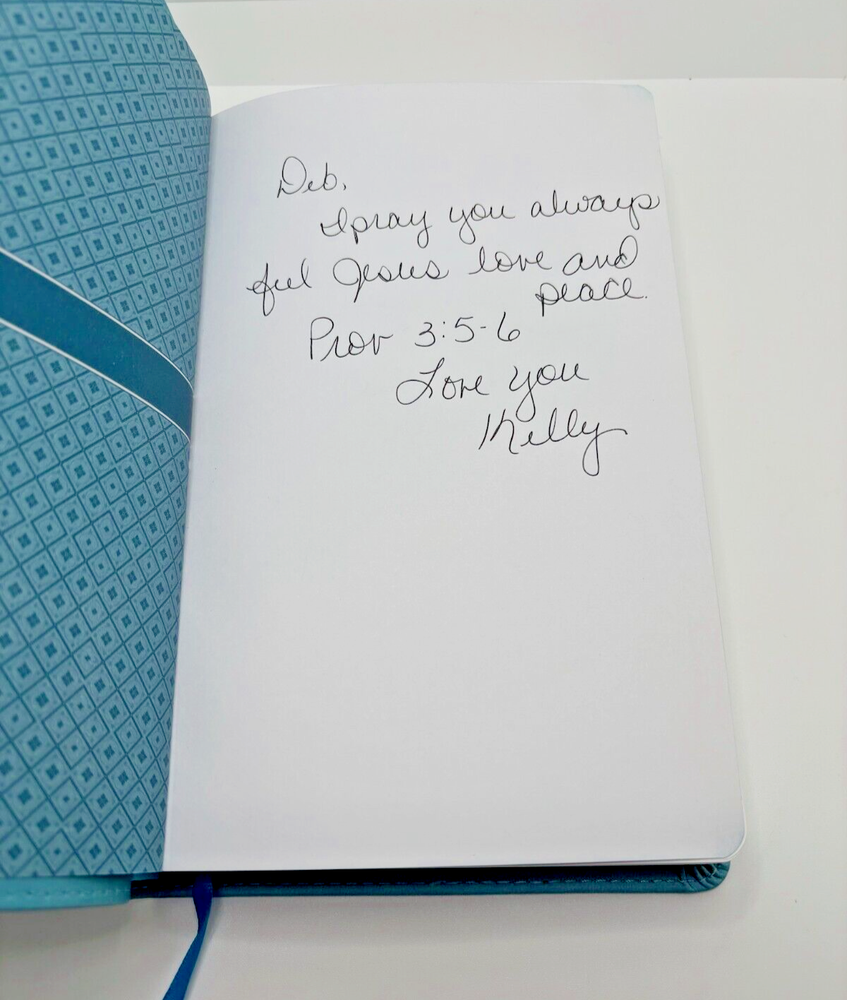 Deb,
I pray you always
feel Jesus love and
peace.
Prov 3:5-6
Love you
Kelly